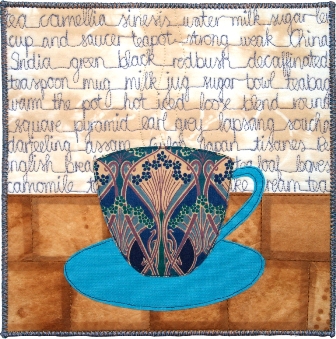 tea camellia sinesis water milk sugar le
cup and saucer teapot strong weak China
India green black redbush decaffinated
teaspoon mug milk jug sugar bowl teabag
warm the pot hot iced loose blend round
square pyramid earl grey lapsang soucho
darjeeling assam ceylon Japan tisanes le
english brea tea loaf baves
camomile t cake cream tea